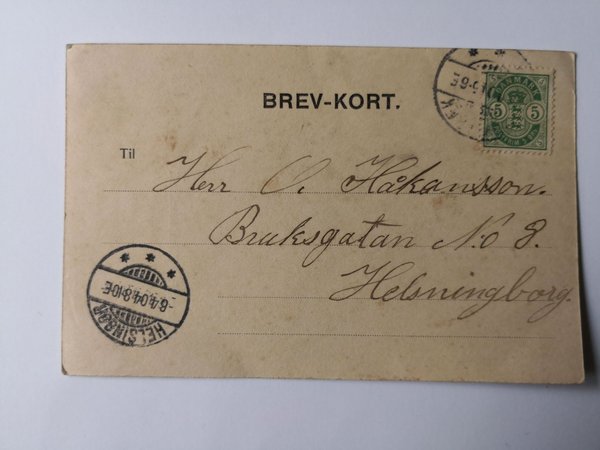 BREV-KORT.
DANMARK
5 5
Til
Herr O. Håkansson.
Bruksgatan No 8.
Helsningborg.
HELSINGØR
-6.4.04.8-10E